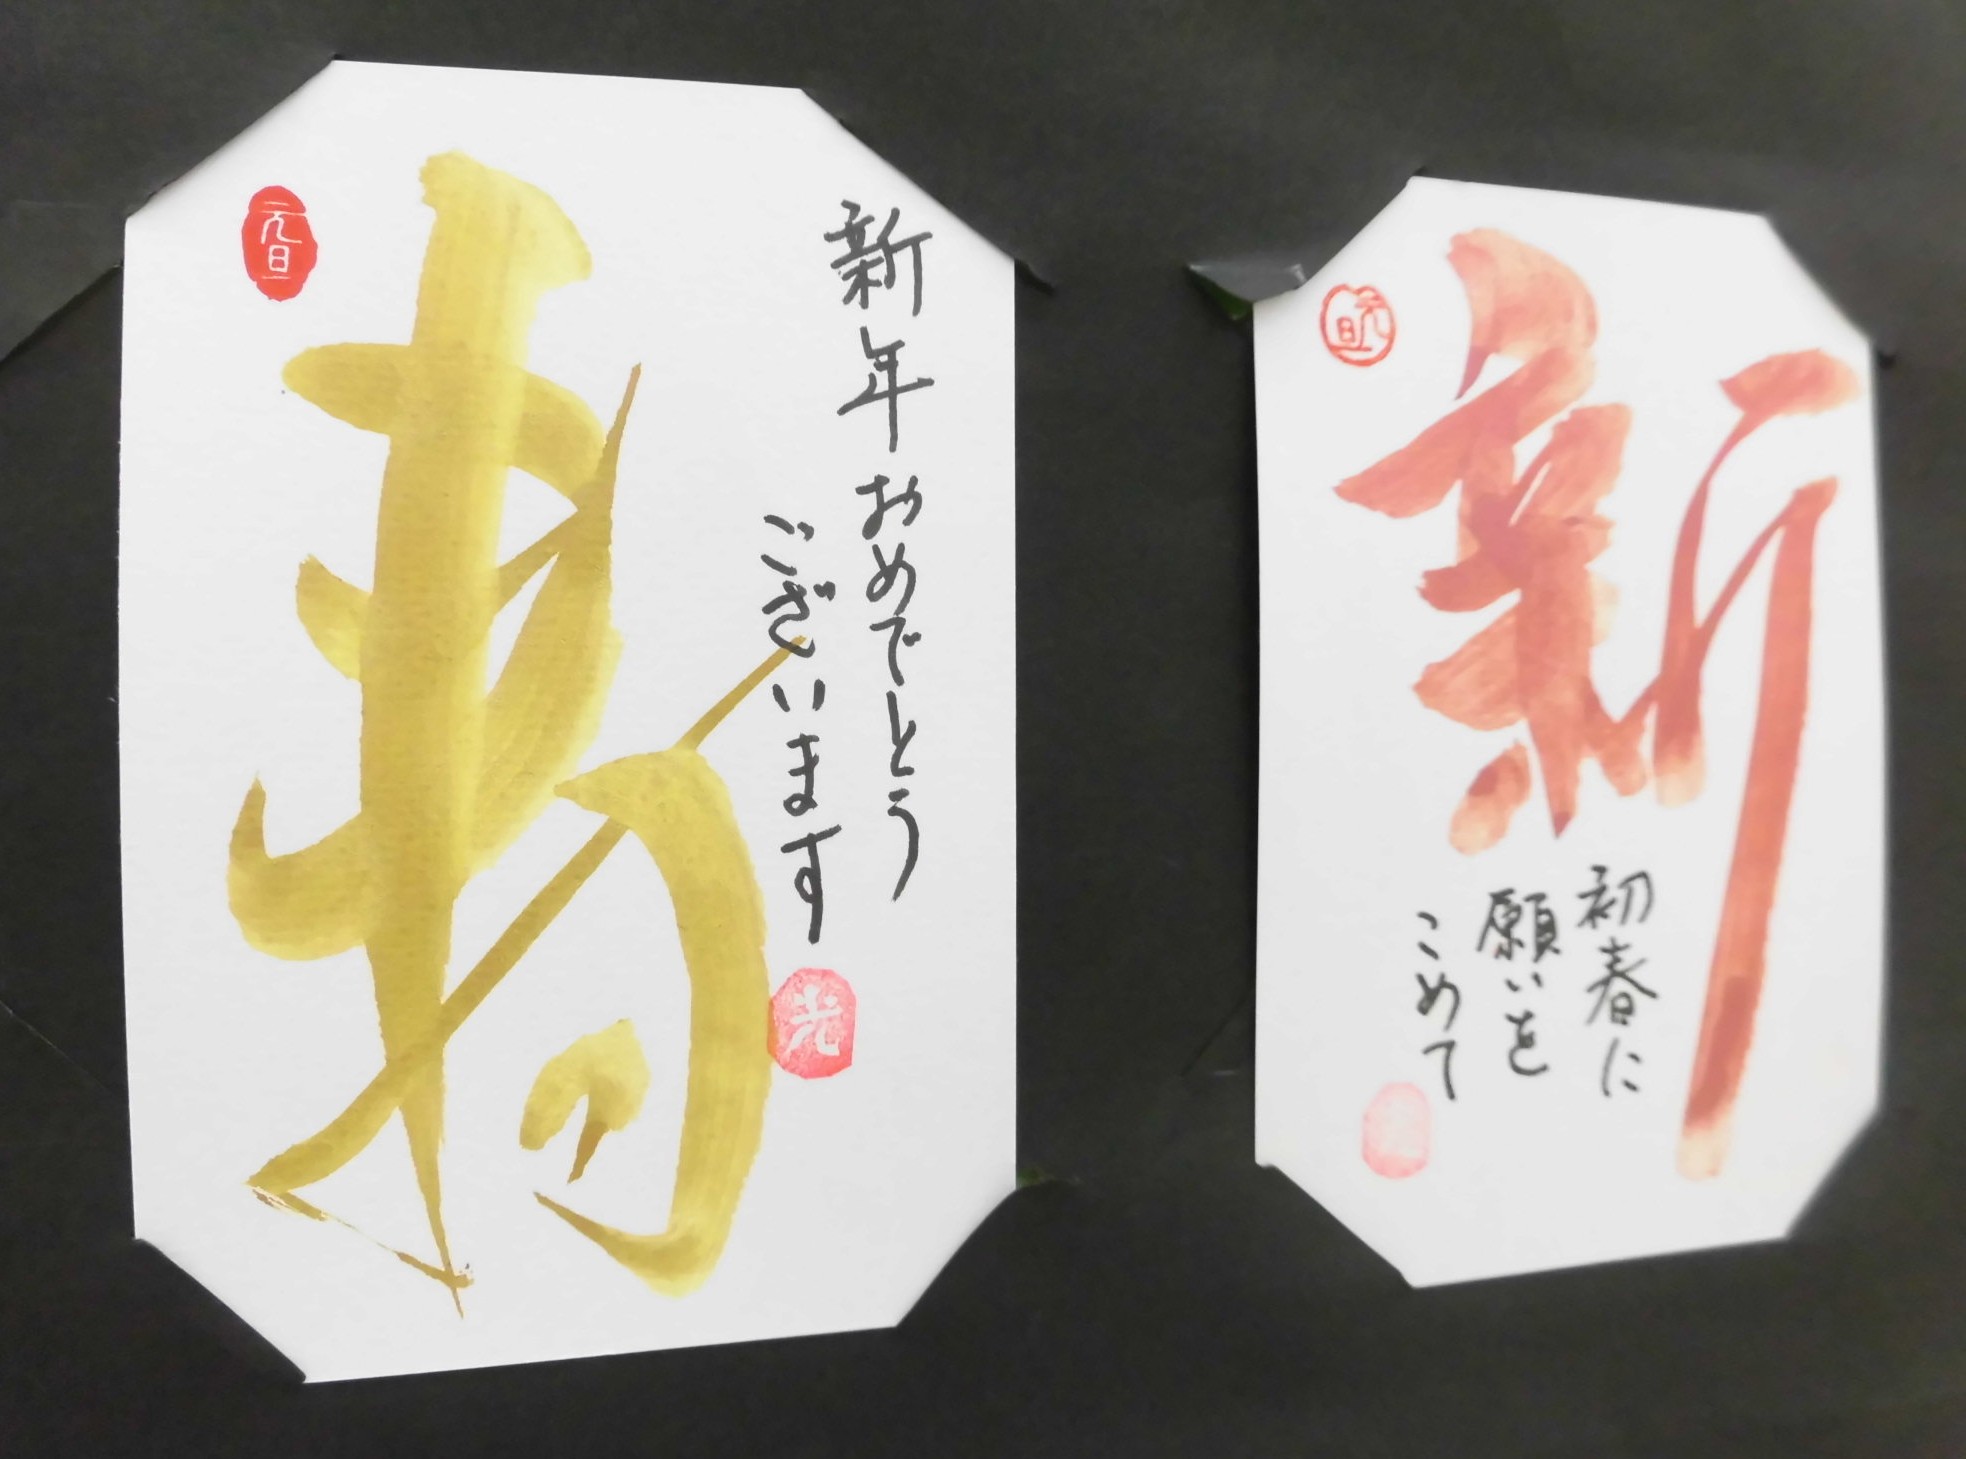 元旦
寿
新年おめでとう
ございます
光
元旦
新
初春に
願いを
こめて